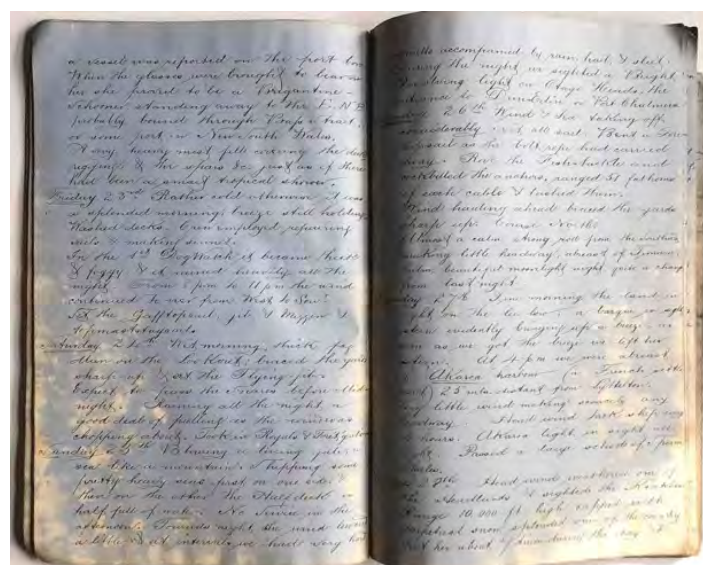 a vessel was reported on the port bow
When the glasses were brought to bear on
her she proved to be a Brigantine
Schooner standing away to the
probably bound through
or some port in New South Wales.
A very heavy mist fell wetting the decks
rigging & the spars &c just as if there
had been a smart tropical shower.
Friday 23rd Rather cold otherwise it was
a splendid morning, breeze still holding
Washed decks. Crew employed repairing
sails & making sennit.
In the 1st Dog Watch it became thick
& foggy & it rained heavily all the
night. From 6 pm to 11 pm the wind
continued to veer from West to
Set the Gafftopsail, jib & &
topmaststaysails
Saturday 24th Wet morning, thick fog
Man on the Lookout; braced the yards
sharp up & set the Flying jib.
Expect to pass the Snares before mid
night. Raining all the night a
good deal of pulling as the wind was
chopping about. Took in Royals &
Sunday 25th Blowing a living gale. a
sea like a mountain. Shipping some
pretty heavy seas first on one side &
then on the other the Half deck is
half full of water. No Service in the
afternoon. Towards night, the wind
a little & at intervals we had very
squalls accompanied by rain, hail, & sleet.
During the night we sighted a Bright
Revolving light on Otago Heads. the
entrance to Dunedin or Port Chalmers
26th Wind & Sea taking off
considerably. set all sail. Bent a Fore
topsail as the bolt rope had carried
away. Rove the and
the anchors, ranged 51 fathoms
of each cable & lashed them.
Wind hauling ahead braced the yards
sharp up. Course North
Almost a calm strong swell from the
making little headway, abreast of
calm beautiful moonlight night quite a change
from last night.
27th Fine morning the land in
sight on the lee bow a barque in
astern evidently bringing up a breeze. as
soon as we got the breeze we left her
astern. At 4 pm we were abreast
Akaroa harbour (a French
) 25 mls distant from Lyttelton.
very little wind making scarcely any
headway. Head wind tack ship every
hours. Akaroa light in sight all
Passed a large school of
whales.
28th Head wind
the headlands & sighted the
Range 10,000 ft high capped with
perpetual snow, splendid
about during the day